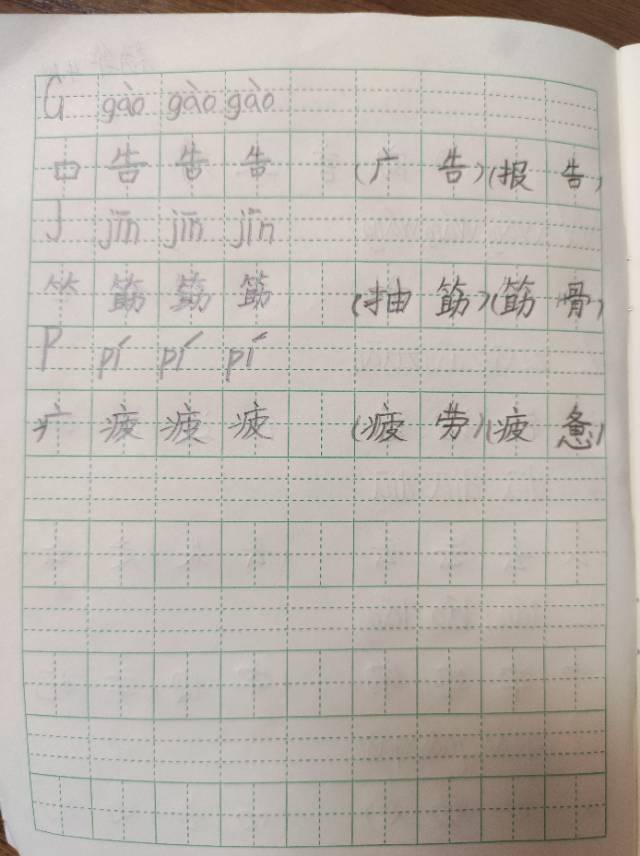 G gào gào gào
口 告 告 告 (广 告)(报 告)
J jīn jīn jīn
⺮ 筋 筋 筋 (抽 筋)(筋 骨)
P pí pí pí
疒 疲 疲 疲 (疲 劳)(疲 惫)